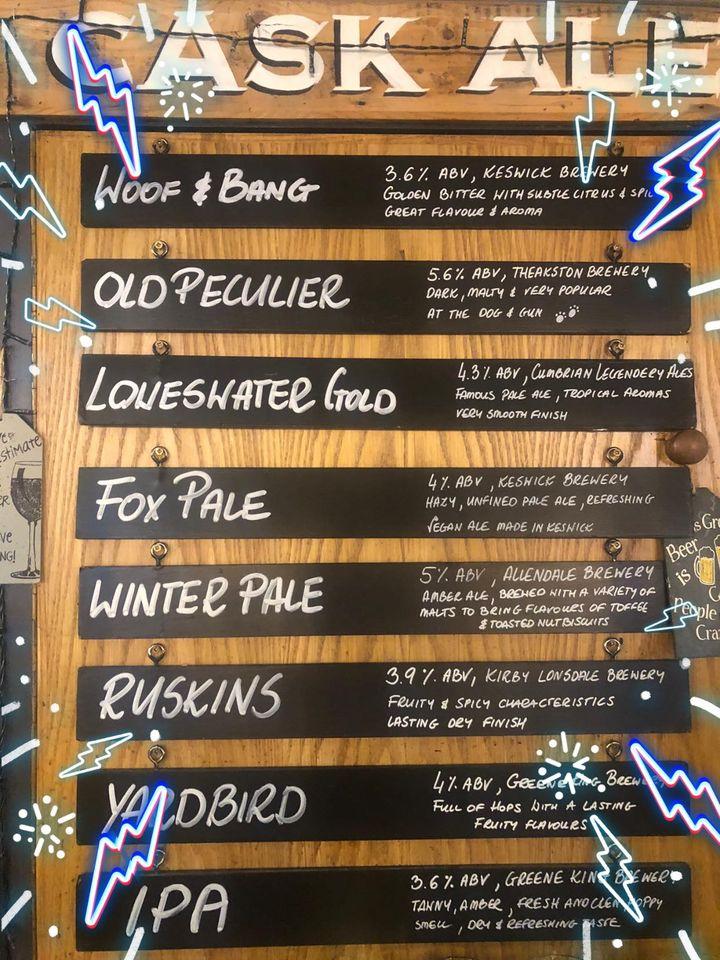 CASK ALE
WOOF & BANG
3.6% ABV, KESWICK BREWERY
GOLDEN BITTER WITH SUBTLE CITRUS &
GREAT FLAVOUR & AROMA
OLD PECULIER
5.6% ABV, THEAKSTON BREWERY
DARK, MALTY & VERY POPULAR
AT THE DOG & GUN
LOWESWATER GOLD
4.3% ABV, CUMBRIAN LEGENDERY ALES
FAMOUS PALE ALE, TROPICAL AROMAS
VERY SMOOTH FINISH
FOX PALE
4% ABV, KESWICK BREWERY
HAZY, UNFINED PALE ALE, REFRESHING
VEGAN ALE MADE IN KESWICK
WINTER PALE
5% ABV, ALLENDALE BREWERY
AMBER ALE, BREWED WITH A VARIETY OF
MALTS TO BRING FLAVOURS OF TOFFEE
& TOASTED NUT BISCUITS
RUSKINS
3.9% ABV, KIRBY LONSDALE BREWERY
FRUITY & SPICY CHARACTERISTICS
LASTING DRY FINISH
YARDBIRD
4% ABV, GREENE KING BREWERY
FULL OF HOPS WITH A LASTING
FRUITY FLAVOURS
IPA
3.6% ABV, GREENE KING BREWERY
TAWNY, AMBER, FRESH AND CLEN HOPPY
SMELL, DRY & REFRESHING TASTE
Beer
is
People